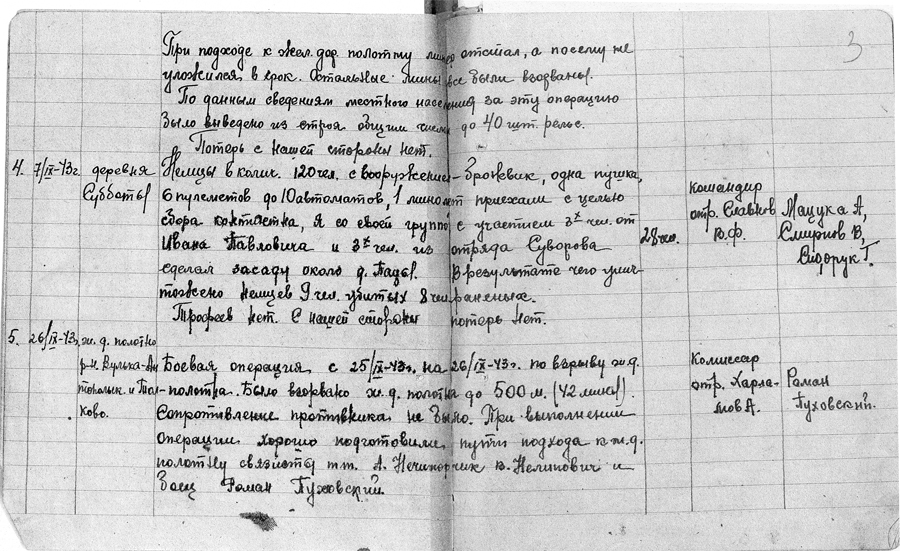 3
При подходе к жел. дор. полотну минер отстал, а посему не
уложился в срок. Остальные мины все были взорваны.
По данным сведениям местного населения за эту операцию
было выведено из строя общим числом до 40 шт. рельс.
Потерь с нашей стороны нет.
4. 7/IX-43г. деревня Субботы
Немцы в колич. 120 чел. с вооружением - Броневик, одна пушка,
6 пулеметов до 10 автоматов, 1 миномет приехали с целью
сбора контингента, я со своей группой с участием 3х чел. от
Ивана Павловича и 3х чел. из отряда Суворова
сделал засаду около д. В результате чего унич-
тожено немцев 9 чел. убитых 8 чел раненых.
Трофеев нет. С нашей стороны потерь нет.
28 чел.
Командир
отр. Славнов
В.Ф.
Мацука А,
Смирнов В,
Сидорук Г.
5. 26/IX-43г. ж.д. полотно
р-н Вулька-Ан
топольск. и
ково.
Боевая операция с 25/IX-43г. на 26/IX-43г. по взрыву ж.д.
-полотна. Было взорвано ж.д. полотна до 500 м. (42 мины).
Сопротивление противника не было. При выполнении
операции хорошо подготовили пути подхода к ж.д.
полотну связисты тт. А. Нечипорчик В. Нелипович и
боец Роман Пуховский.
Комиссар
отр. Харла-
мов А.
Роман
Пуховский.